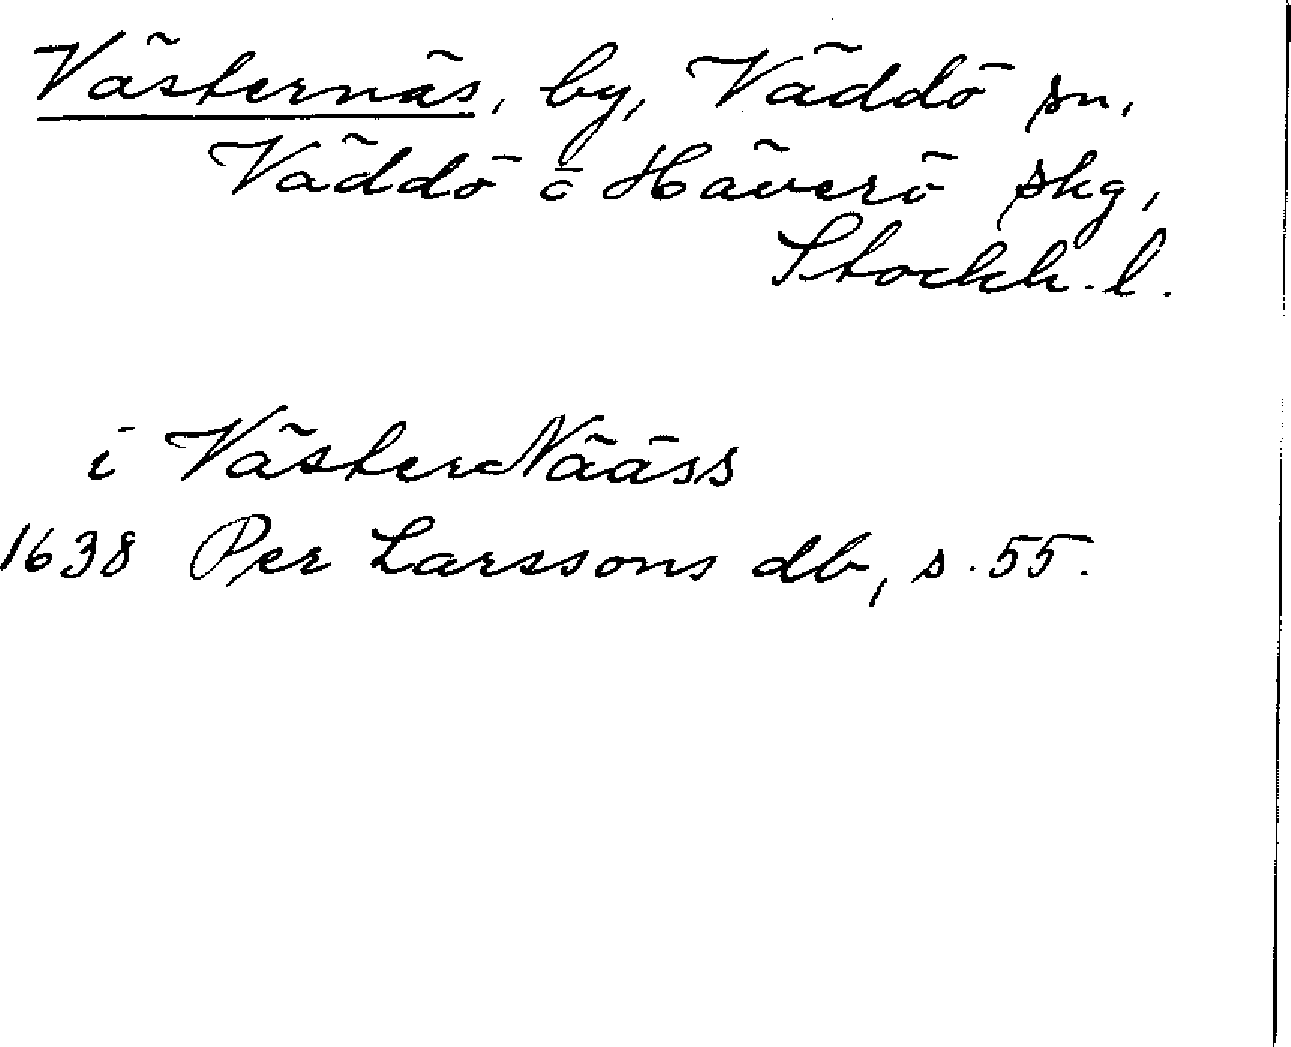 Västernäs, by, Väddö sn,
Väddö o Häverö skg,
Stockh. l.
i VästerNääss
1638 Per Larssons db, s. 55.